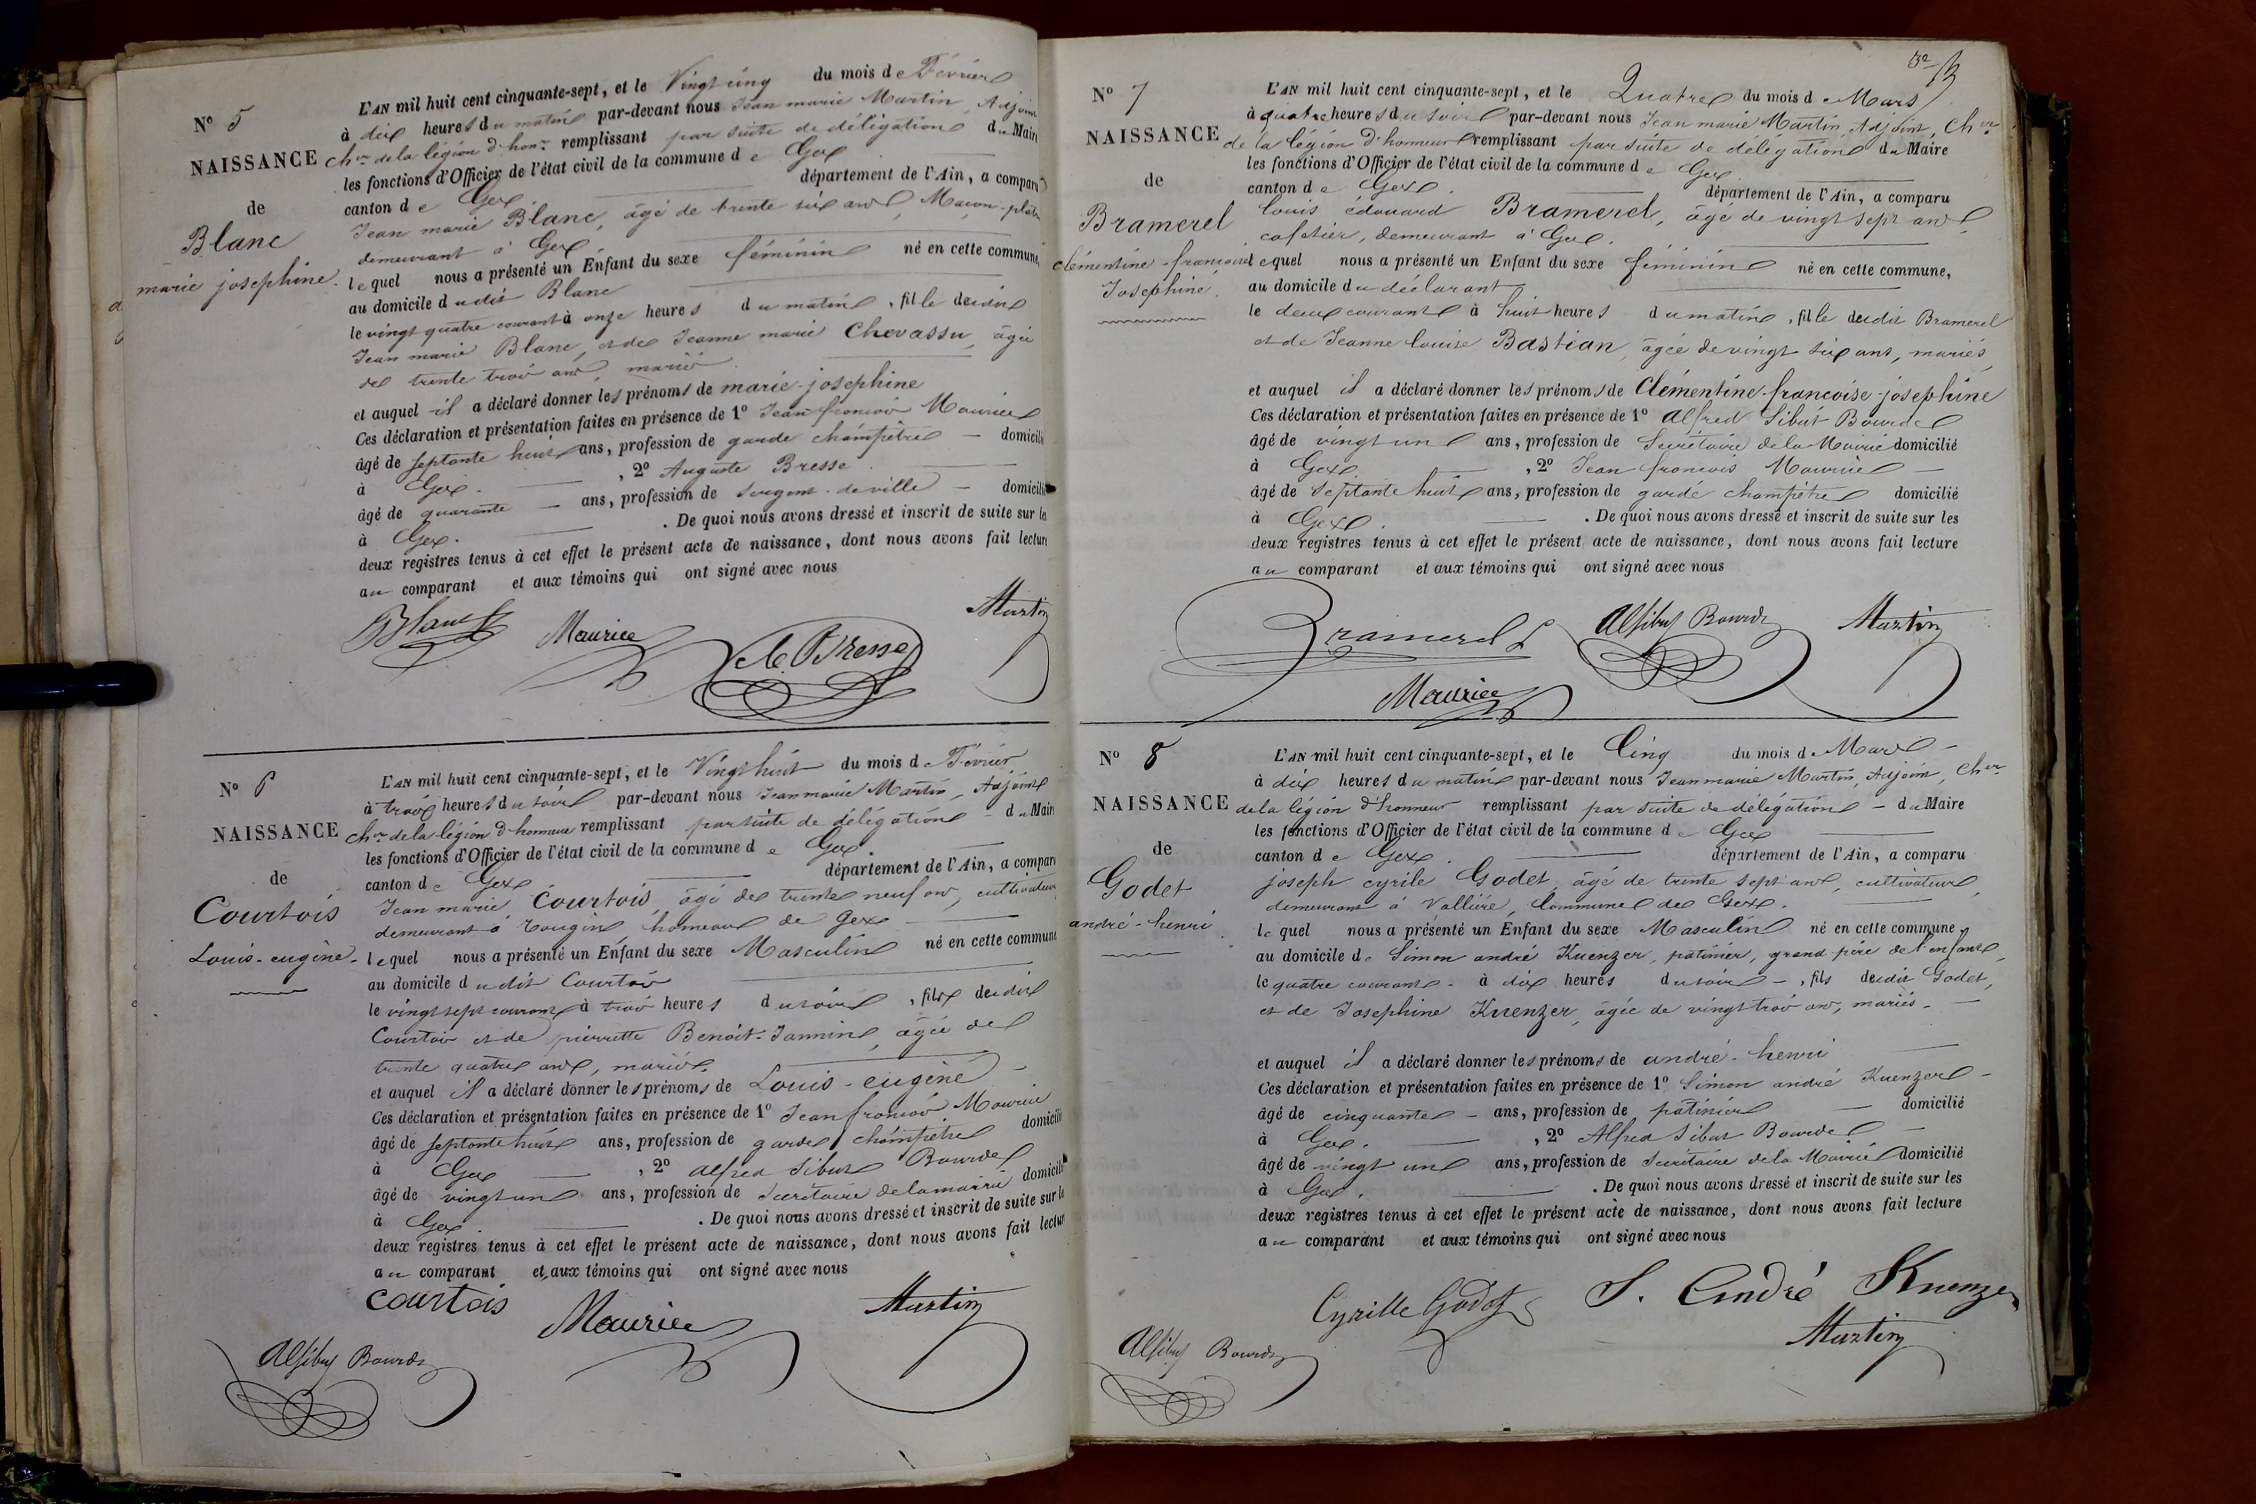 Nº 5
NAISSANCE
de
Blanc
marie josephine.
L'AN mil huit cent cinquante-sept, et le Vingt cinq du mois de Février
à dix heures du matin par-devant nous Jean marie Martin, Adjoint
cher de la légion d'honr remplissant par suite de délégation du Maire
les fonctions d'Officier de l'état civil de la commune de Gex
canton de Gex. département de l'Ain, a comparu
Jean marie Blanc, âgé de trente six ans, Maçon-
demeurant à Gex
lequel nous a présenté un Enfant du sexe féminin né en cette commune,
au domicile dudit Blanc
le vingt quatre courant à onze heures du matin, fille dudit
Jean marie Blanc, et de Jeanne marie Chevassu, âgée
de trente trois ans, mariés.
et auquel il a déclaré donner les prénoms de marie-josephine
Ces déclaration et présentation faites en présence de 1º Jean francois Maurice
âgé de septante huit ans, profession de garde champêtre domicilié
à Gex. , 2º Auguste Bresse
âgé de quarante ans, profession de sergent-de ville domicilié
à Gex. . De quoi nous avons dressé et inscrit de suite sur les
deux registres tenus à cet effet le présent acte de naissance, dont nous avons fait lecture
au comparant et aux témoins qui ont signé avec nous
Blanc Maurice Bresse Martin
Nº 6
NAISSANCE
de
Courtois
Louis-eugène.
L'AN mil huit cent cinquante-sept, et le Vingt huit du mois de Février
à trois heures du soir par-devant nous Jean marie Martin, Adjoint
Cher de la légion d'honneur remplissant par suite de délégation du Maire
les fonctions d'Officier de l'état civil de la commune de Gex.
canton de Gex département de l'Ain, a comparu
Jean marie Courtois, âgé de trente neuf ans, cultivateur
demeurant à tougin hameau de Gex
lequel nous a présenté un Enfant du sexe Masculin né en cette commune
au domicile dudit Courtois
le vingt sept courant à trois heures du soir, fils dudit
Courtois et de pierrette Benoit-Jannin, âgée de
trente quatre ans, mariés.
et auquel il a déclaré donner les prénoms de Louis-eugène
Ces déclaration et présentation faites en présence de 1º Jean francois Maurice
âgé de septante huit ans, profession de garde champêtre domicilié
à Gex , 2º alfred Sibut Bourdel
âgé de vingt un ans, profession de Secrétaire de la mairie domicilié
à Gex. . De quoi nous avons dressé et inscrit de suite sur les
deux registres tenus à cet effet le présent acte de naissance, dont nous avons fait lecture
au comparant et aux témoins qui ont signé avec nous
courtois Maurice Martin
Alsibus Bourde
Nº 7
NAISSANCE
de
Bramerel
clémentine-francoise
Josephine.
L'AN mil huit cent cinquante-sept, et le Quatre du mois de Mars
à quatre heures du soir par-devant nous Jean marie Martin, Adjoint, Cher
de la légion d'honneur remplissant par suite de délégation du Maire
les fonctions d'Officier de l'état civil de la commune de Gex
canton de Gex. département de l'Ain, a comparu
louis édouard Bramerel, âgé de vingt sept ans,
cafetier, demeurant à Gex.
lequel nous a présenté un Enfant du sexe féminin né en cette commune,
au domicile du déclarant
le deux courant à huit heures du matin, fille dudit Bramerel
et de Jeanne louise Bastian, âgée de vingt six ans, mariés
et auquel il a déclaré donner les prénoms de Clémentine-francoise-josephine
Ces déclaration et présentation faites en présence de 1º alfred Sibut Bourdel
âgé de vingt un ans, profession de Secrétaire de la Mairie domicilié
à Gex. , 2º Jean francois Maurice
âgé de septante huit ans, profession de garde champêtre domicilié
à Gex. . De quoi nous avons dressé et inscrit de suite sur les
deux registres tenus à cet effet le présent acte de naissance, dont nous avons fait lecture
au comparant et aux témoins qui ont signé avec nous
Bramerel Alsibus Bourde Martin
Maurice
Nº 8
NAISSANCE
de
Godet
andré-henri.
L'AN mil huit cent cinquante-sept, et le Cinq du mois de Mars
à dix heures du matin par-devant nous Jean marie Martin, Adjoint, Cher
de la légion d'honneur remplissant par suite de délégation du Maire
les fonctions d'Officier de l'état civil de la commune de Gex
canton de Gex. département de l'Ain, a comparu
joseph cyrile Godet, âgé de trente sept ans, cultivateur,
demeurant à Vallière, Commune de Gex.
lequel nous a présenté un Enfant du sexe Masculin né en cette commune,
au domicile de Simon andré Kuenzer, patinier, grand-père de l'enfant,
le quatre courant à dix heures du soir, fils dudit Godet,
et de Josephine Kuenzer, âgée de vingt trois ans, mariés.
et auquel il a déclaré donner les prénoms de andré-henri
Ces déclaration et présentation faites en présence de 1º Simon andré Kuenzer
âgé de cinquante ans, profession de patinier domicilié
à Gex. , 2º Alfred Sibut Bourdel
âgé de vingt un ans, profession de Secrétaire de la Mairie domicilié
à Gex. . De quoi nous avons dressé et inscrit de suite sur les
deux registres tenus à cet effet le présent acte de naissance, dont nous avons fait lecture
au comparant et aux témoins qui ont signé avec nous
Cyrille Godet S. André Kuenzer
Alsibus Bourde Martin